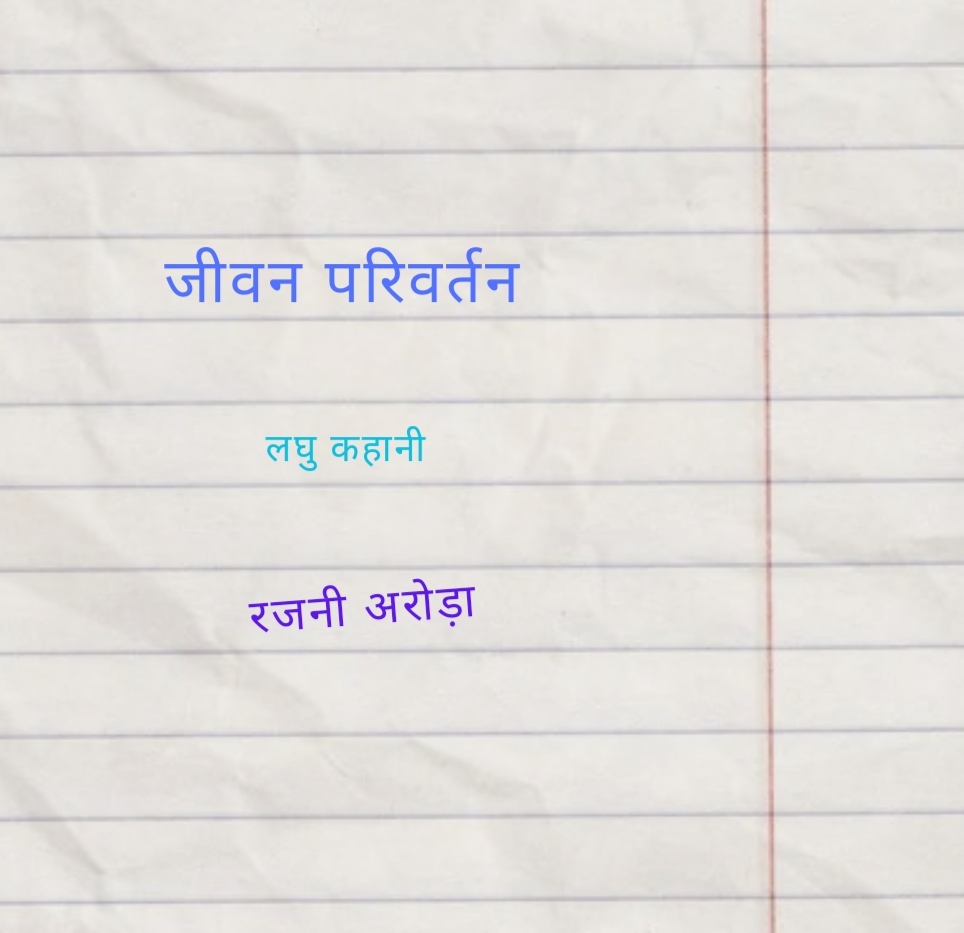 जीवन परिवर्तन
लघु कहानी
रजनी अरोड़ा